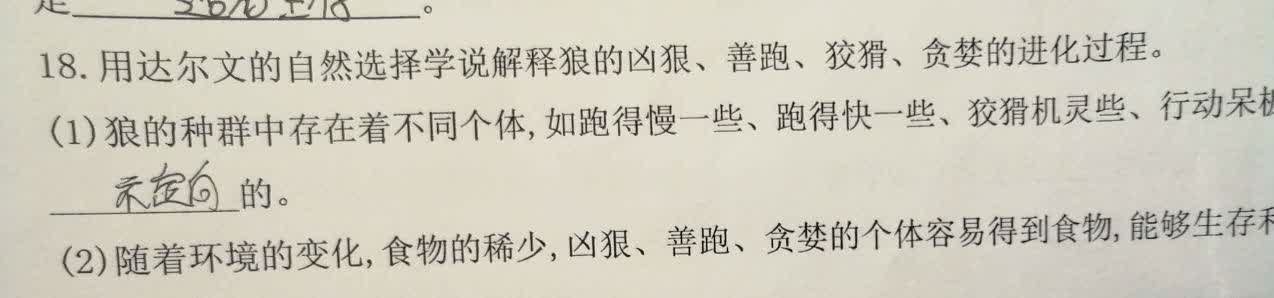 18. 用达尔文的自然选择学说解释狼的凶狠、善跑、狡猾、贪婪的进化过程。
(1)狼的种群中存在着不同个体,如跑得慢一些、跑得快一些、狡猾机灵些、行动呆
不定向 的。
(2)随着环境的变化,食物的稀少,凶狠、善跑、贪婪的个体容易得到食物,能够生存